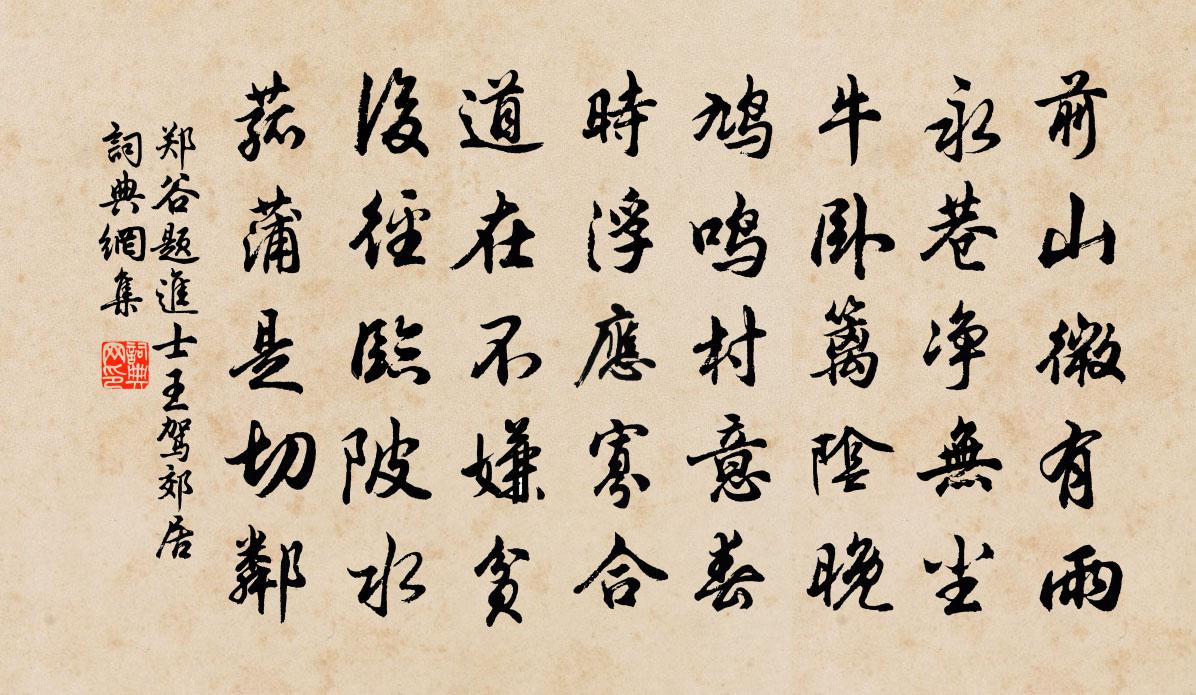 前山微有雨
永巷净無尘
牛卧篱陰晚
鳩鸣村意春
時浮應寡合
道在不嫌貧
後徑臨陂水
菰蒲是切鄰
郑谷题進士王驾郊居
詞典網集
詞典网印